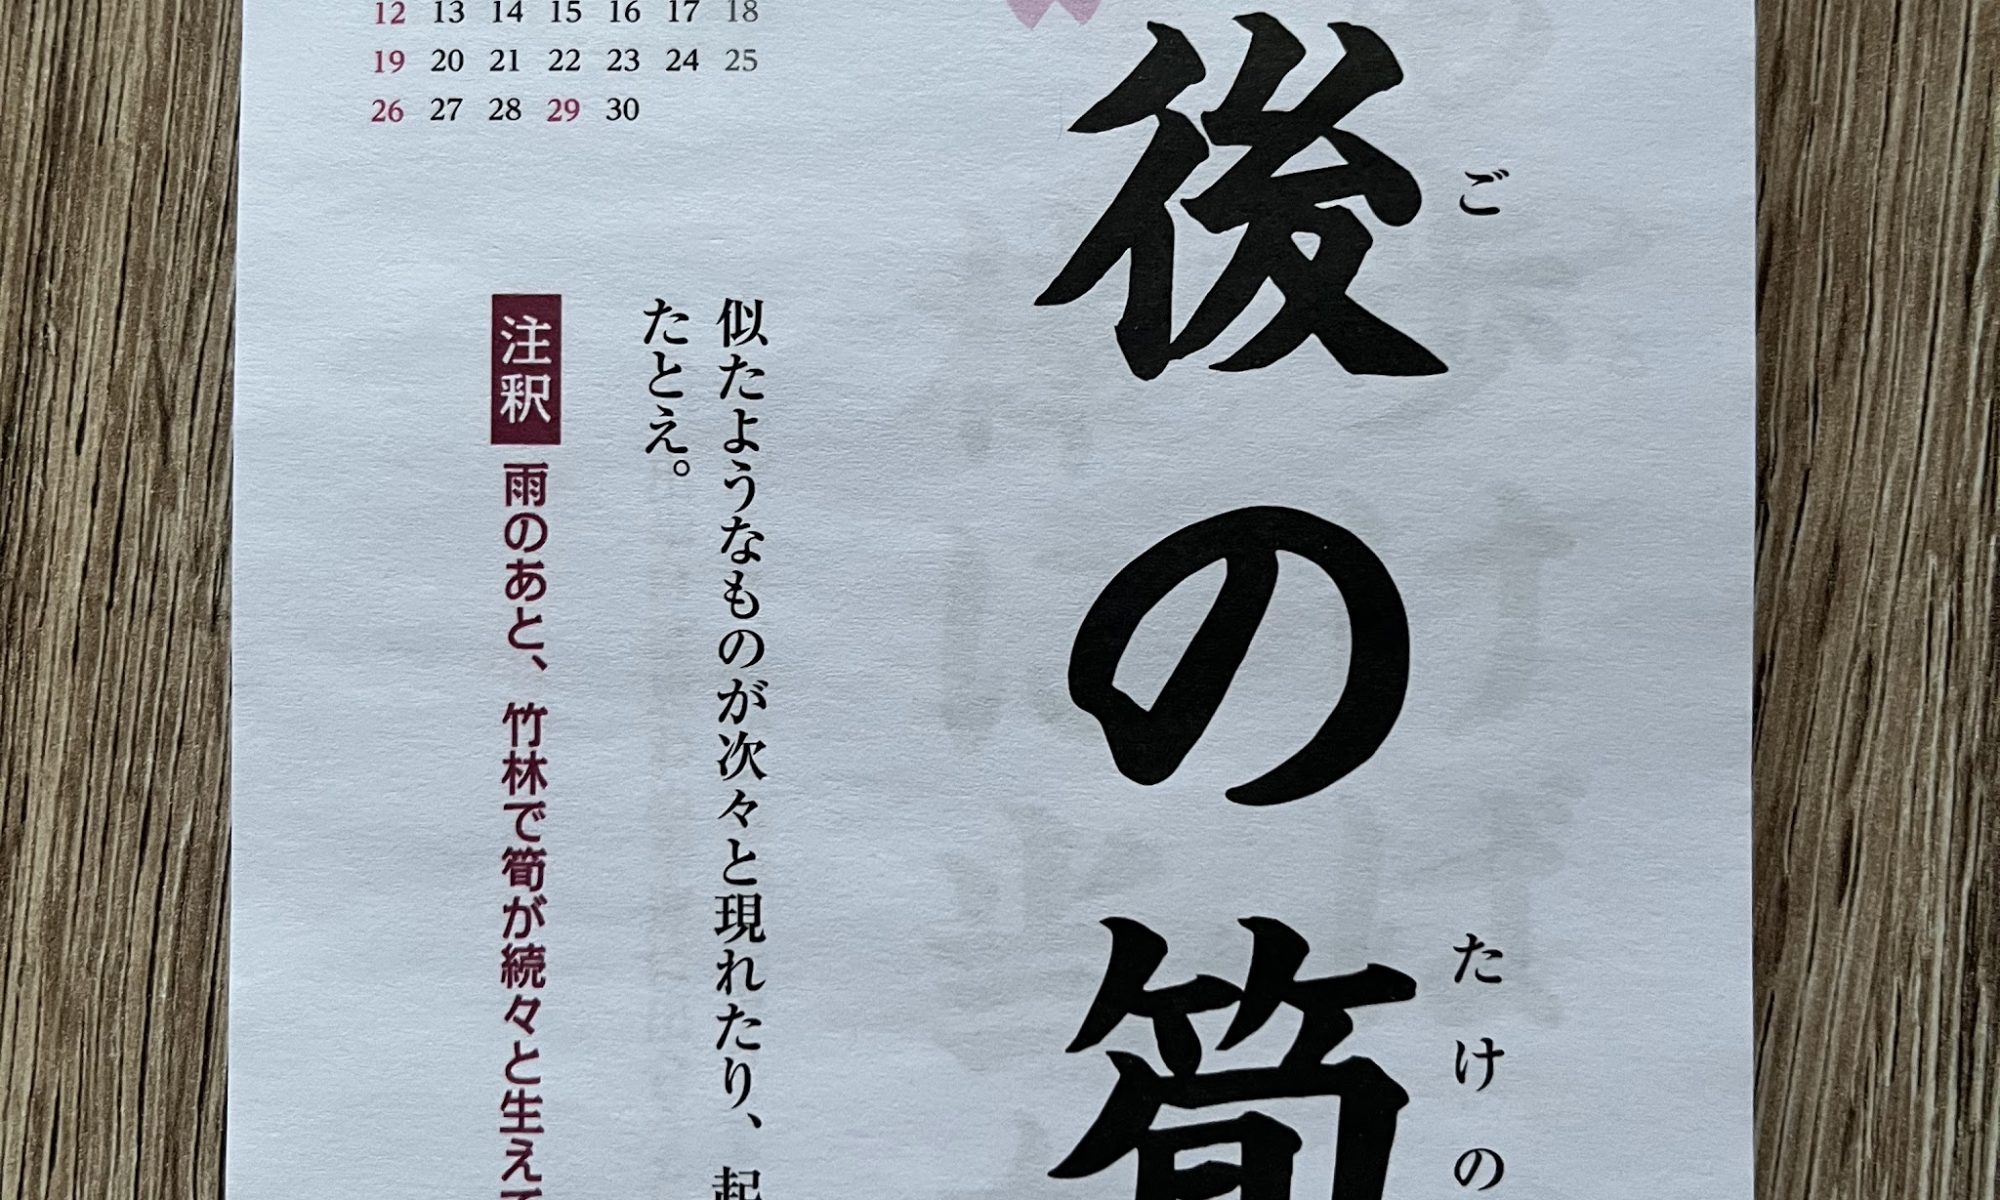 12 13 14 15 16 17 18
19 20 21 22 23 24 25
26 27 28 29 30
後の筍
ご たけの
似たようなものが次々と現れたり、起
たとえ。
注釈 雨のあと、竹林で筍が続々と生えて